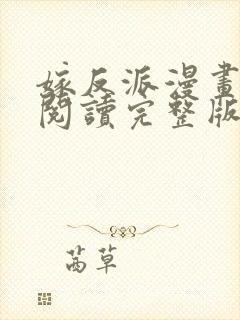 嫁反派漫畫
閱讀完整版
茜草